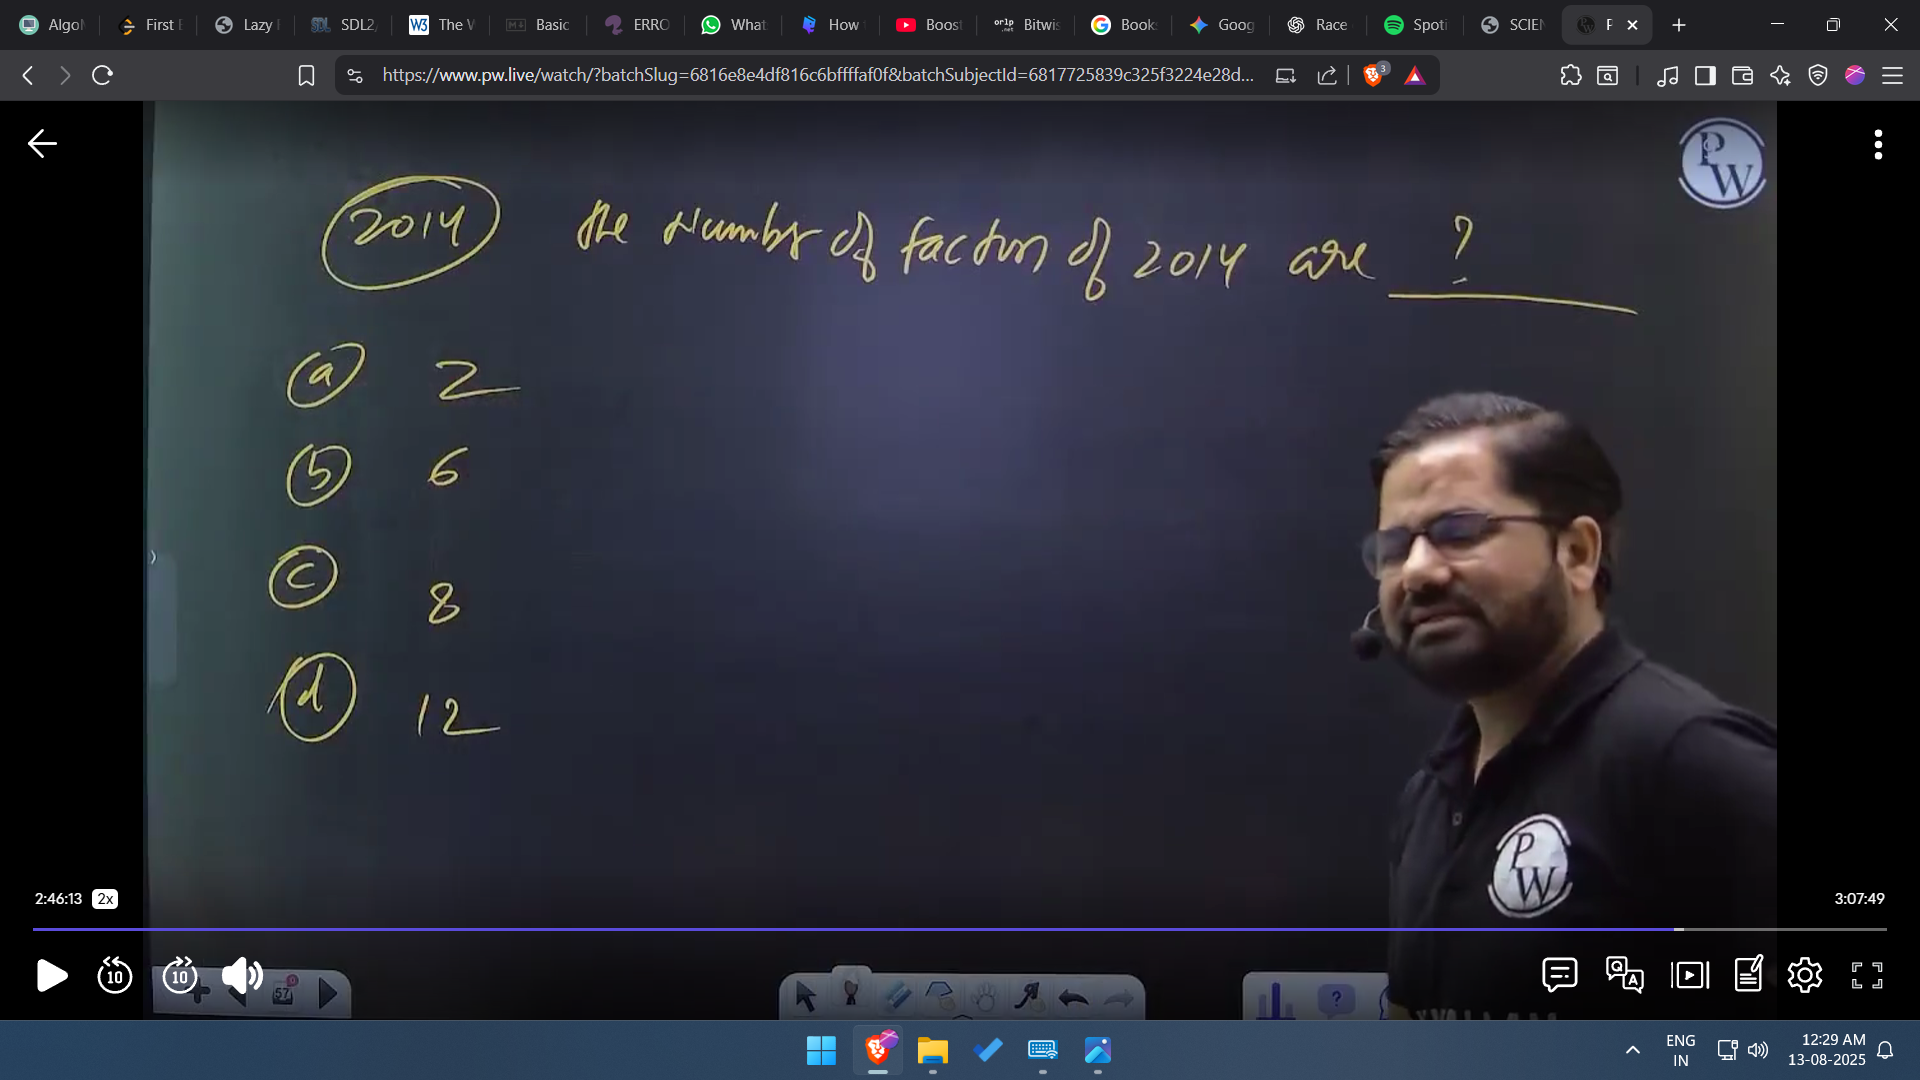 AlgoM
First E
Lazy
SDL2
The W
Basic
ERRO
What
How
Boost
Bitwis
Book
Goog
Race
Spoti
SCIEN
F
https://www.pw.live/watch/?batchSlug=6816e8e4df816c6bffffaf0f&batchSubjectId=6817725839c325f3224e28d...
3
PW
2014 the Number of factors of 2014 are ?
(a) 2
(b) 6
(c) 8
(d) 12
PW
2:46:13 2x
3:07:49
10
10
57
?
Q A
ENG
IN
12:29 AM
13-08-2025